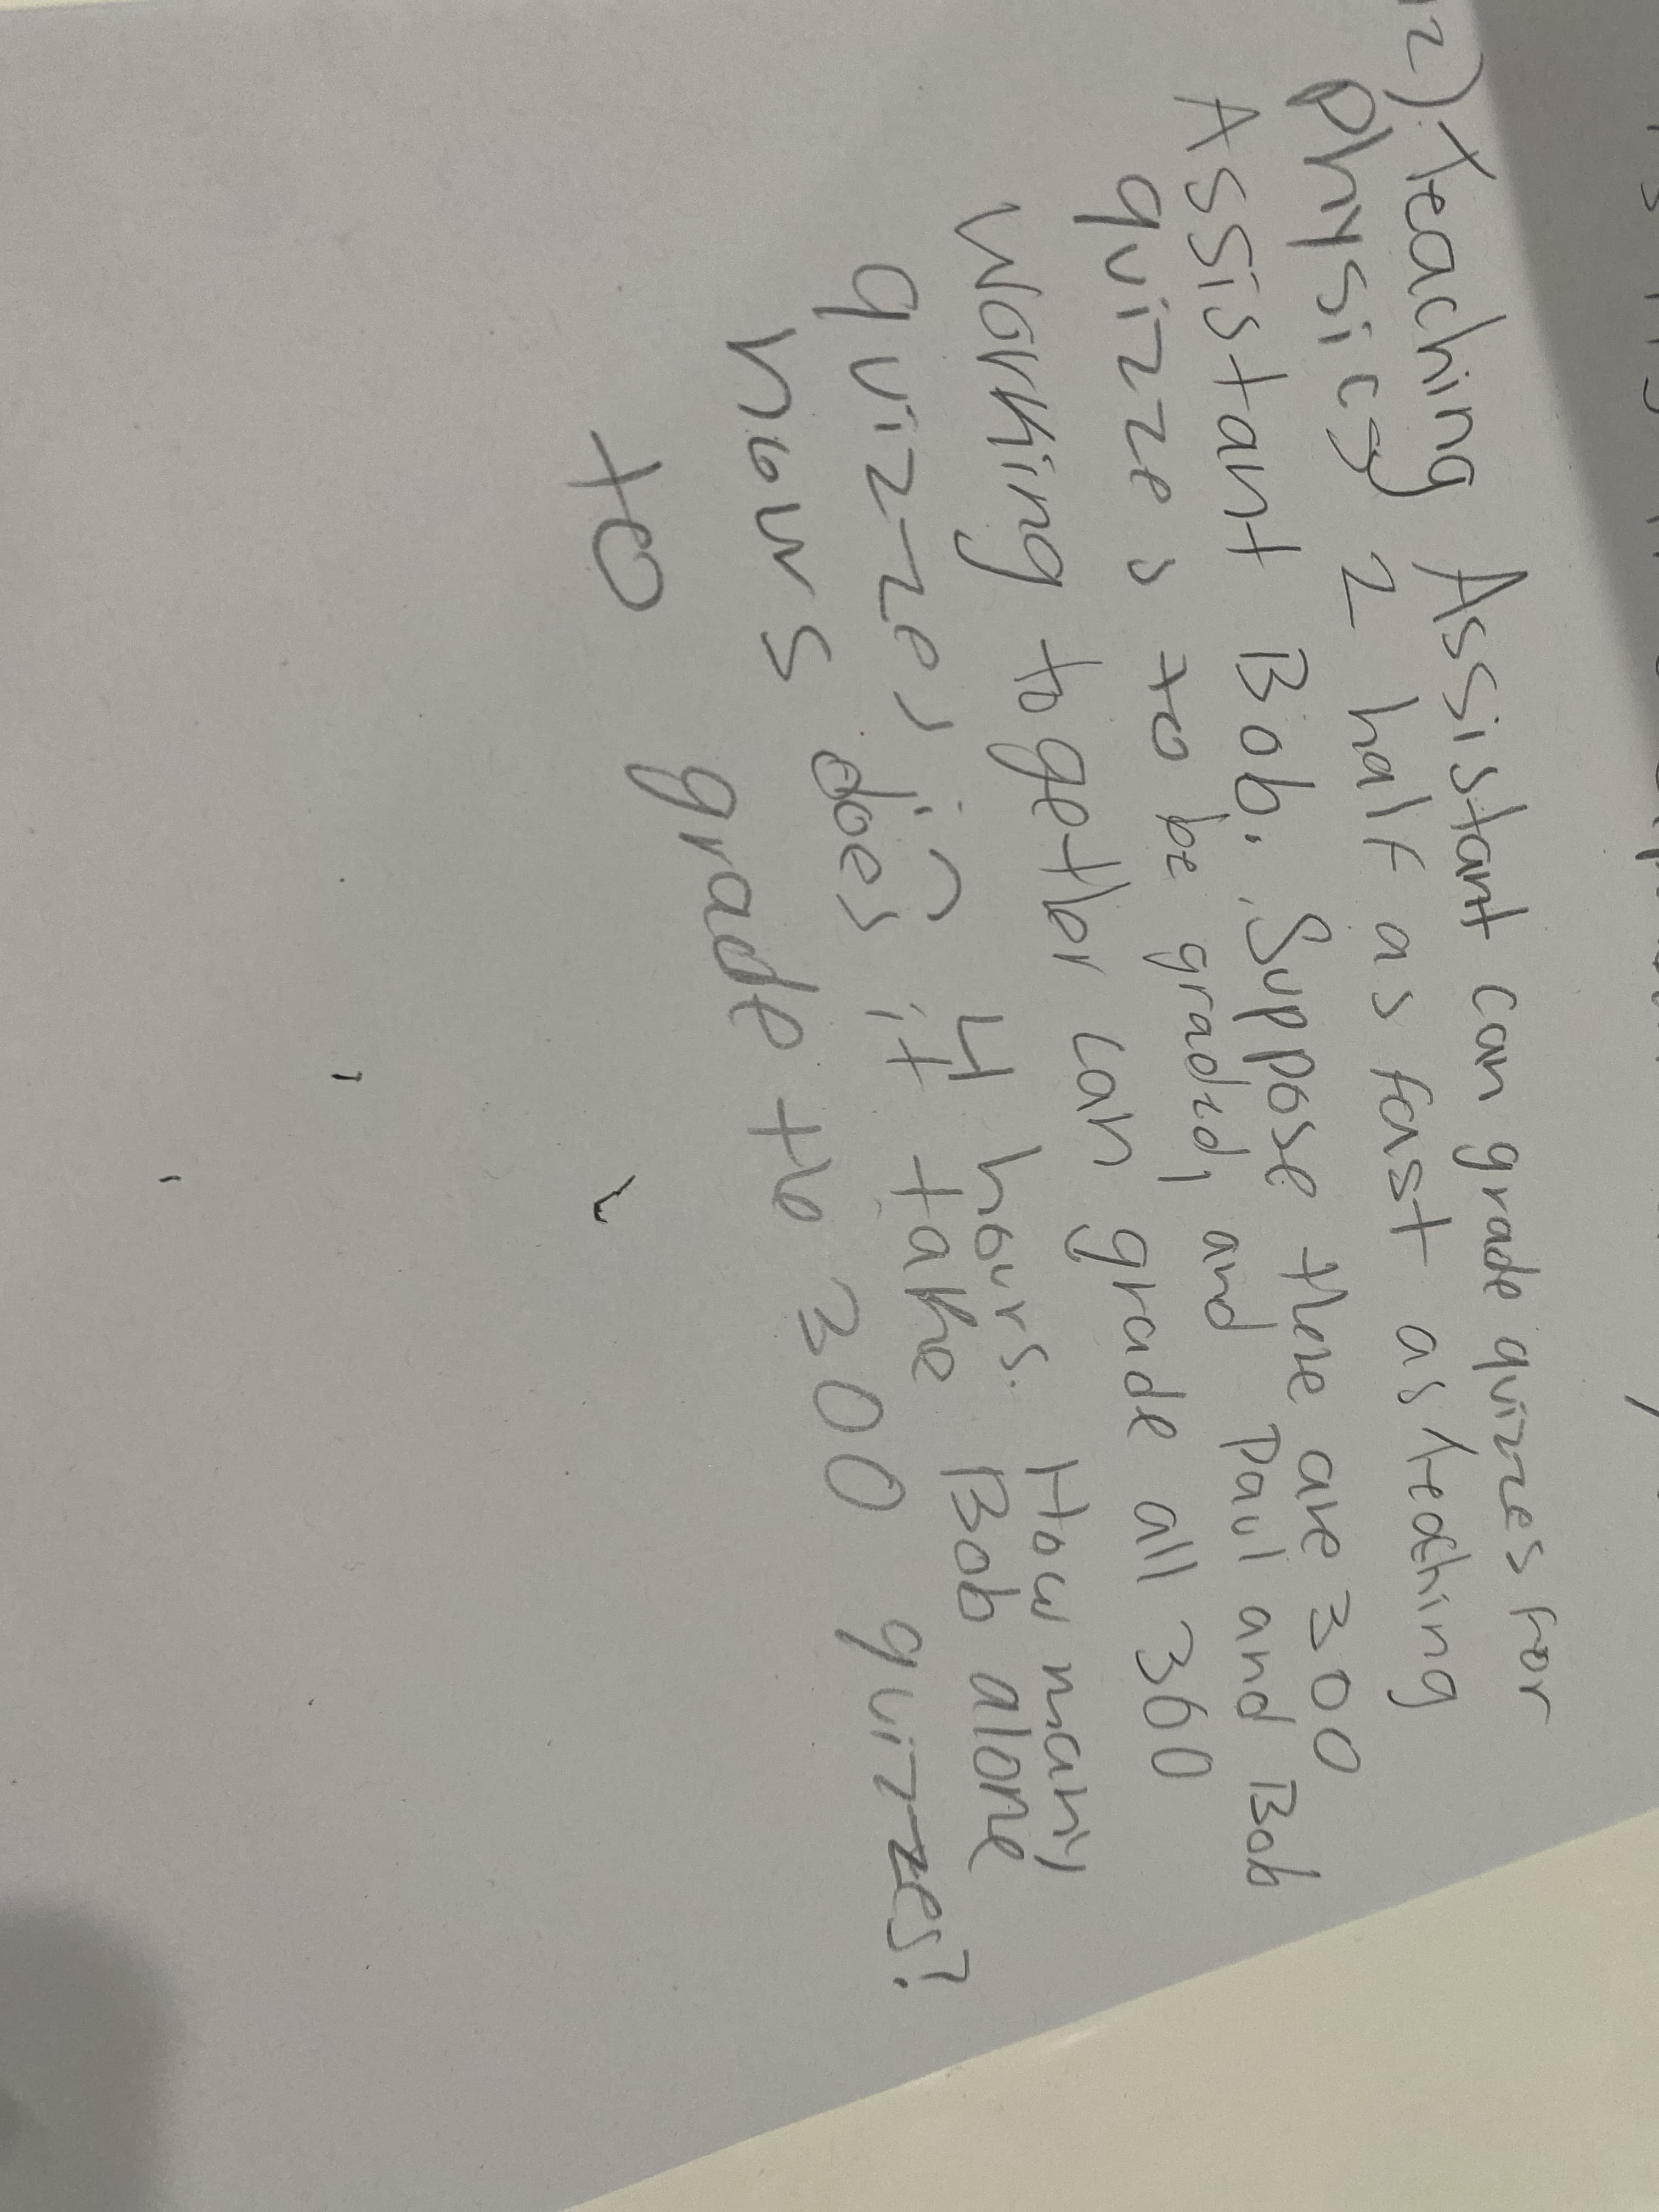 12) teaching Assistant can grade quizzes for
physics 2 half as fast as teaching
Assistant Bob. Suppose there are 300
quizzes to be graded, and Paul and Bob
working together can grade all 360
quizzes in 4 hours. How many
hours does it take Bob alone
to grade the 300 quizzes?